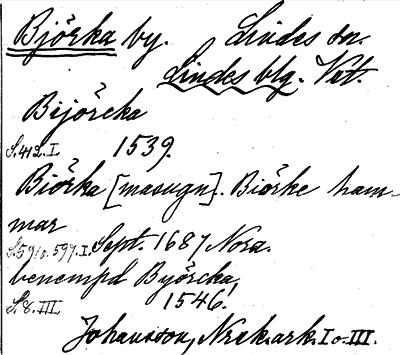 Björka by. Lindes sn.
Lindes blg. Vstm.
Bijórcka
S. 412. I. 1539.
Biörka [masugn]. Biörke ham-
mar
S. 591 o. 597. I. Sept. 1687 Nora.
benempd Byörcka,
S. 8. III. 1546.
Johansson, Norak. ark. I o. III.